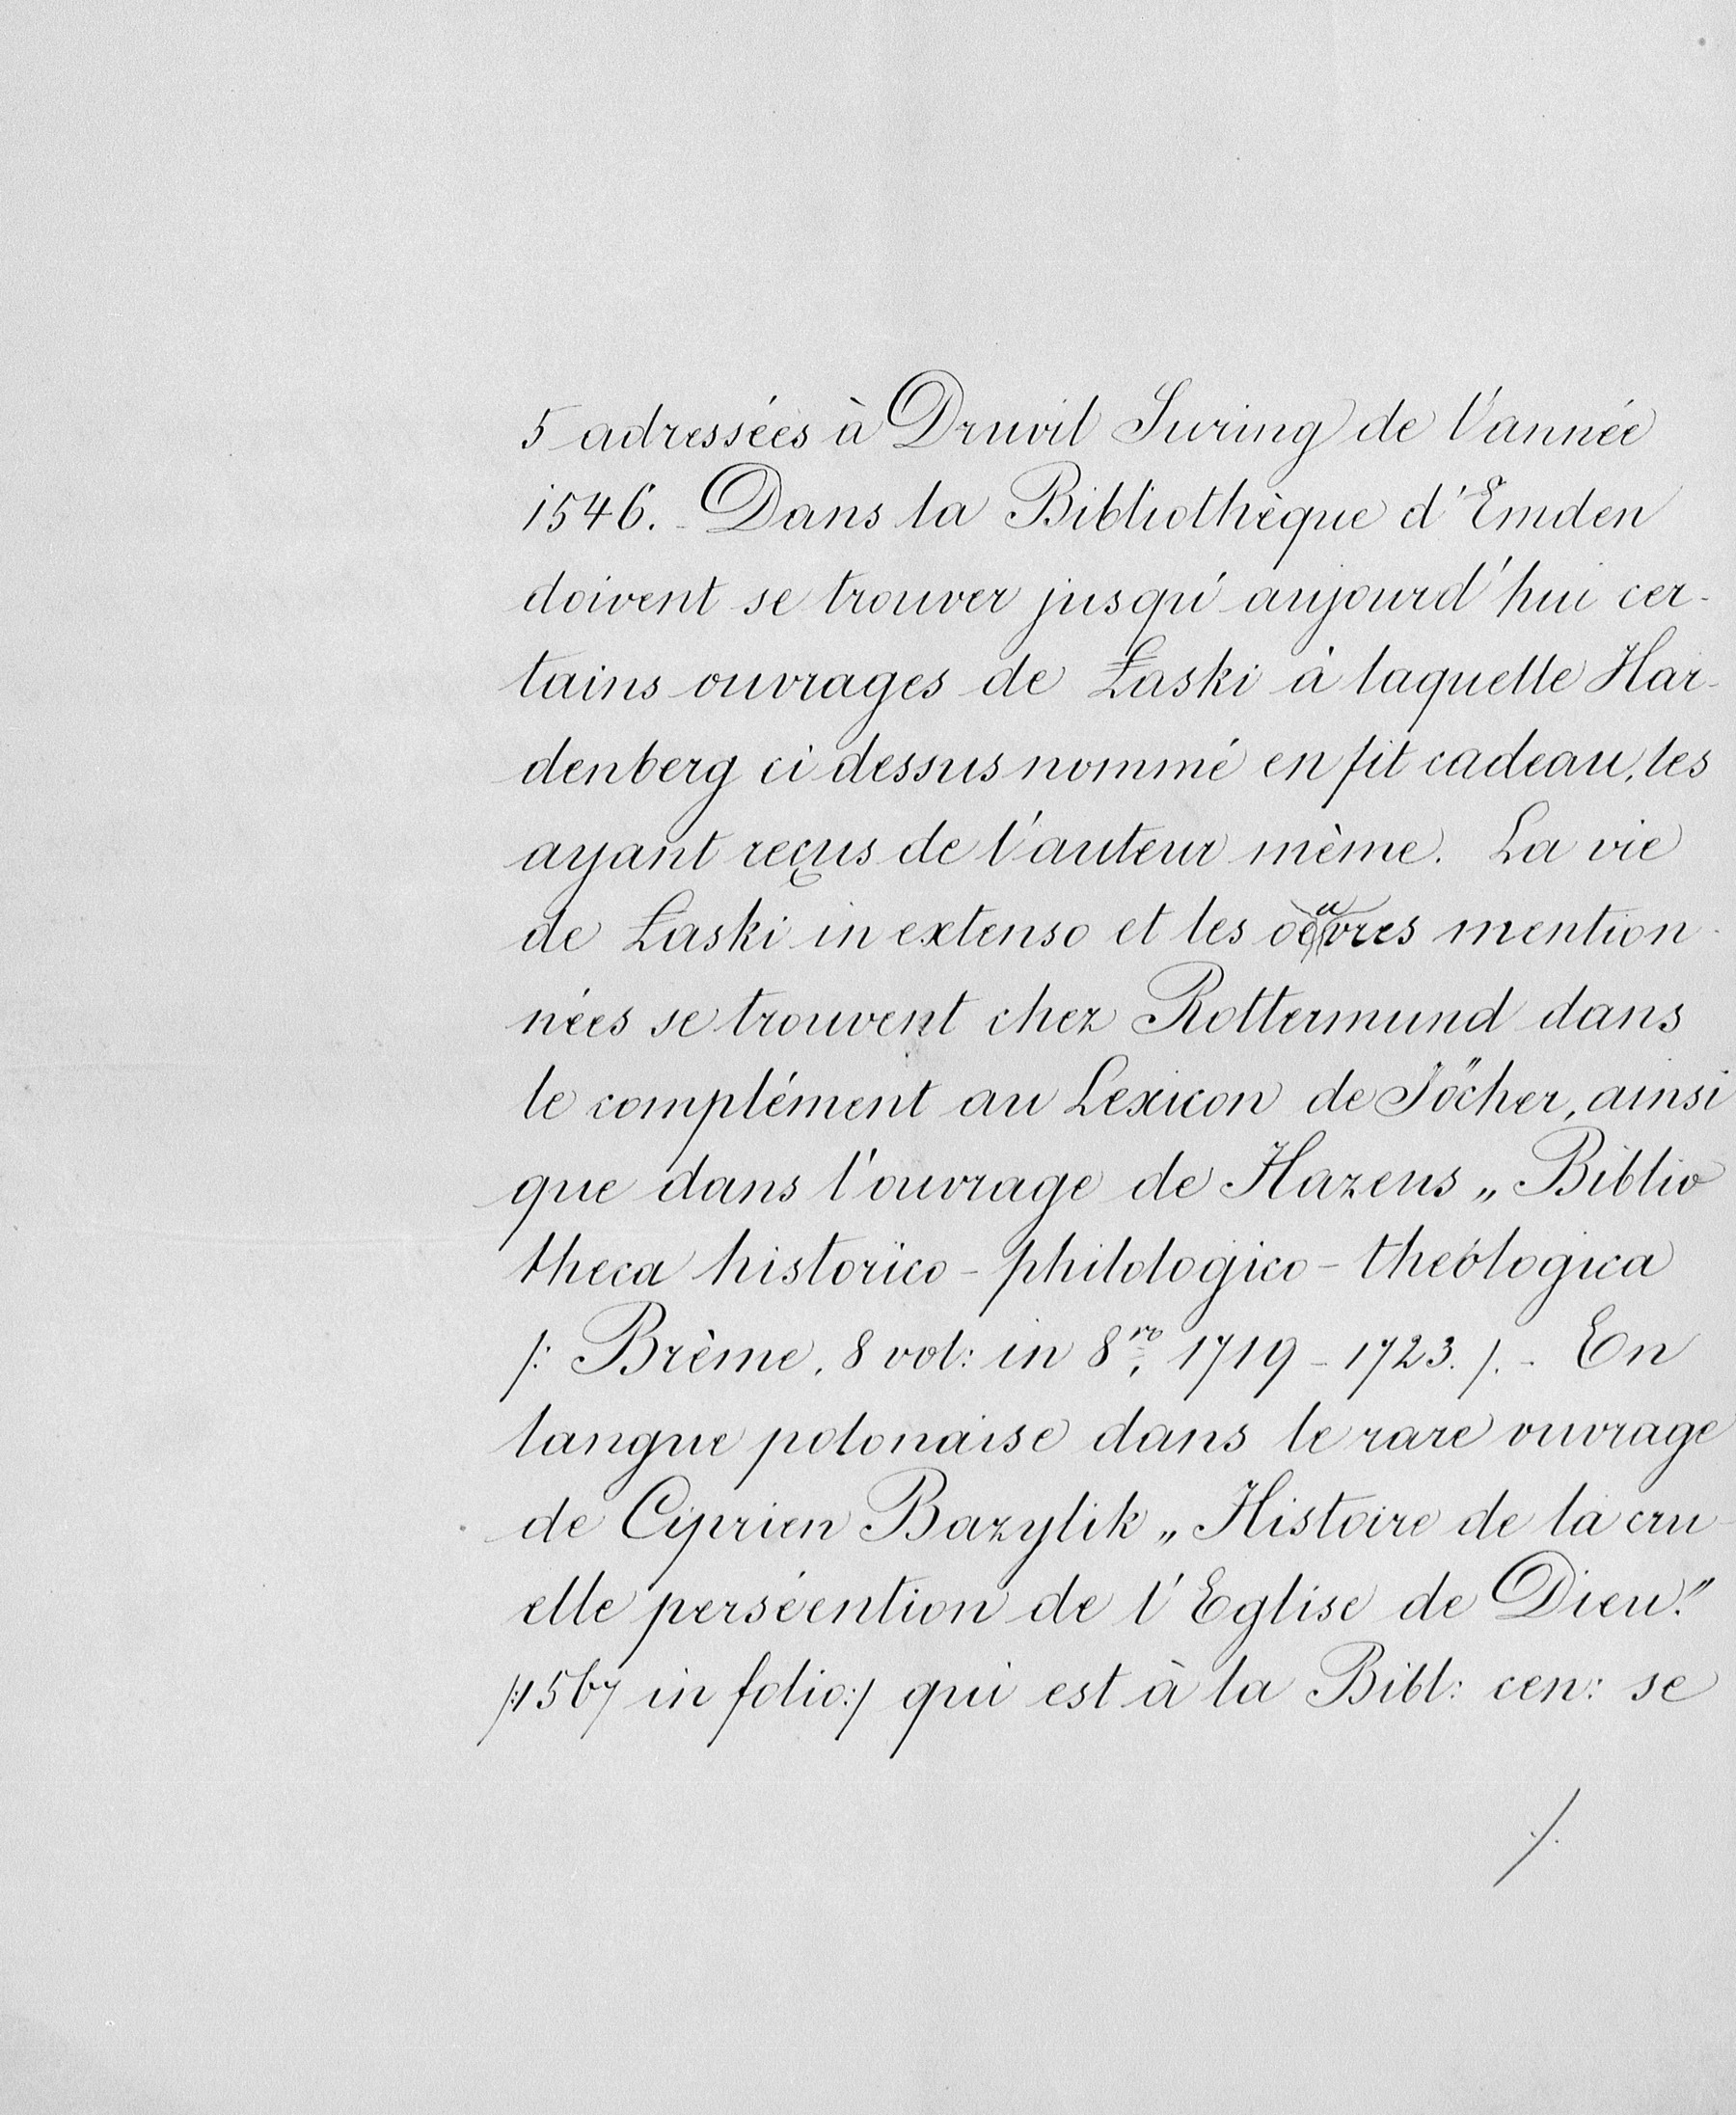 5 adressées à Druvil Suring de l'année
1546. - Dans la Bibliothèque d'Emden
doivent se trouver jusqu'aujourd'hui cer-
tains ouvrages de Łaski à laquelle Har-
denberg ci dessus nommé en fit cadeau, les
ayant reçus de l'auteur mème. La vie
de Łaski in extenso et les oeuvres mention-
nées se trouvent chez Rottermund dans
le complément au Lexicon de Jöcher, ainsi
que dans l'ouvrage de Hazeus „Biblio
theca historico-philologico-theologica
/: Brème, 8 vol: in 8vo, 1719 - 1723. /. - En
langue polonaise dans le rare ouvrage
de Ciprien Bazylik „Histoire de la cru-
elle perséention de l'Eglise de Dieu."
/:1567 in folio:/ qui est à la Bibl: cen: se
./.